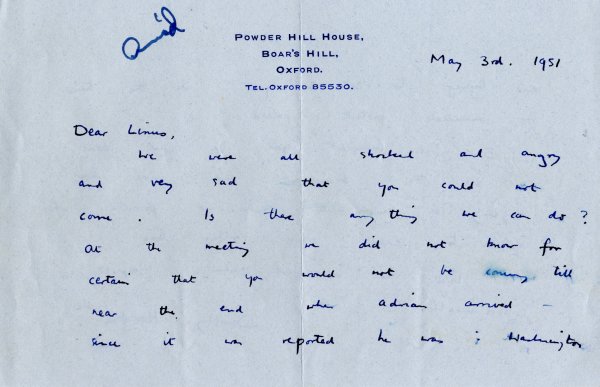 Ans'd
POWDER HILL HOUSE,
BOAR'S HILL,
OXFORD.
TEL. OXFORD 85530.
May 3rd. 1951
Dear Linus,
We were all shocked and angry
and very sad that you could not
come. Is there any thing we can do?
At the meeting we did not know for
certain that you would not be coming till
near the end when Adrian arrived –
since it was reported he was in Washington